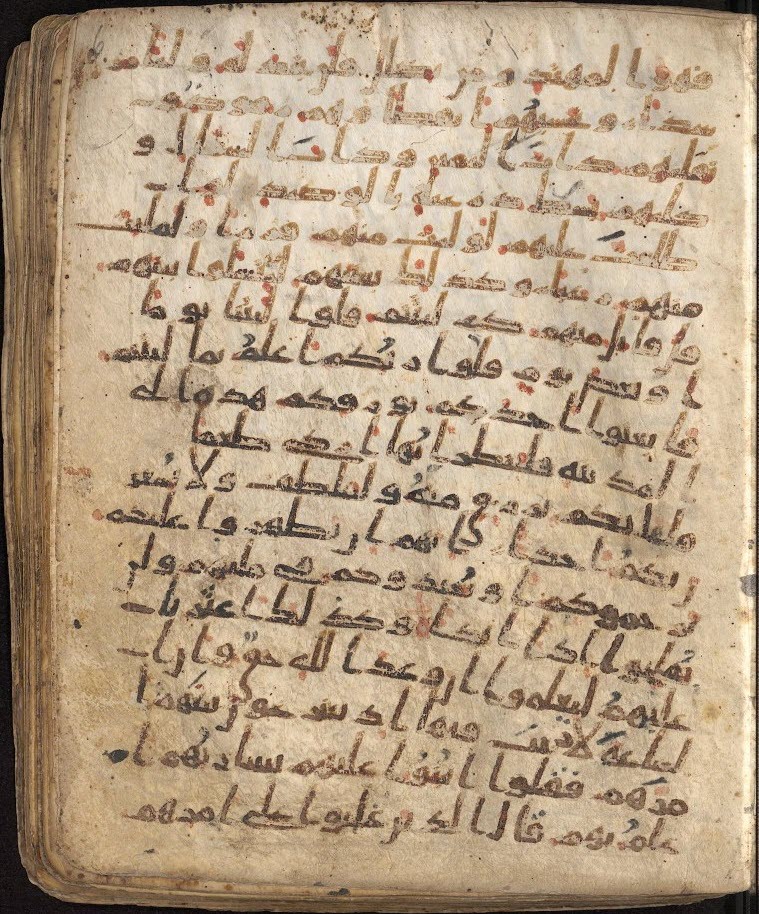 فهو المهتد و من يضلل فلن تجد له و ليا مر
شدا و تحسبهم ايقاظا و هم رقود و
نقلبهم ذات اليمين و ذات الشمال و
كلبهم بسط ذرعيه بالوصيد لو ا
طلعت عليهم لوليت منهم فرارا و لملئت
منهم رعبا و كذلك بعثنهم ليتسلوا بينهم
قل قايل منهم كم لبثتم قلوا لبثنا يوما
ا و بعض يوم قلوا ربكم اعلم بما لبثتم
فابعثوا احدكم بورقكم هذه الى
ا لمدينه فلينظر ايها ازكى طعما
فلياتكم برزق منه و ليتلطف و لا يشعر
ن بكم احدا انهم ان يظهروا عليكم
ير جموكم او يعيدوكم في ملتهم و لن
تفلحوا اذا ابدا و كذلك اعثرنا
عليهم ليعلموا ان و عد الله حق و ان ا
لساعه لا ريب فيها اذ يتنزعون بينهم ا
مرهم فقلوا ابنوا عليهم بنينا ربهم ا
علم بهم قال الذين غلبوا على امرهم